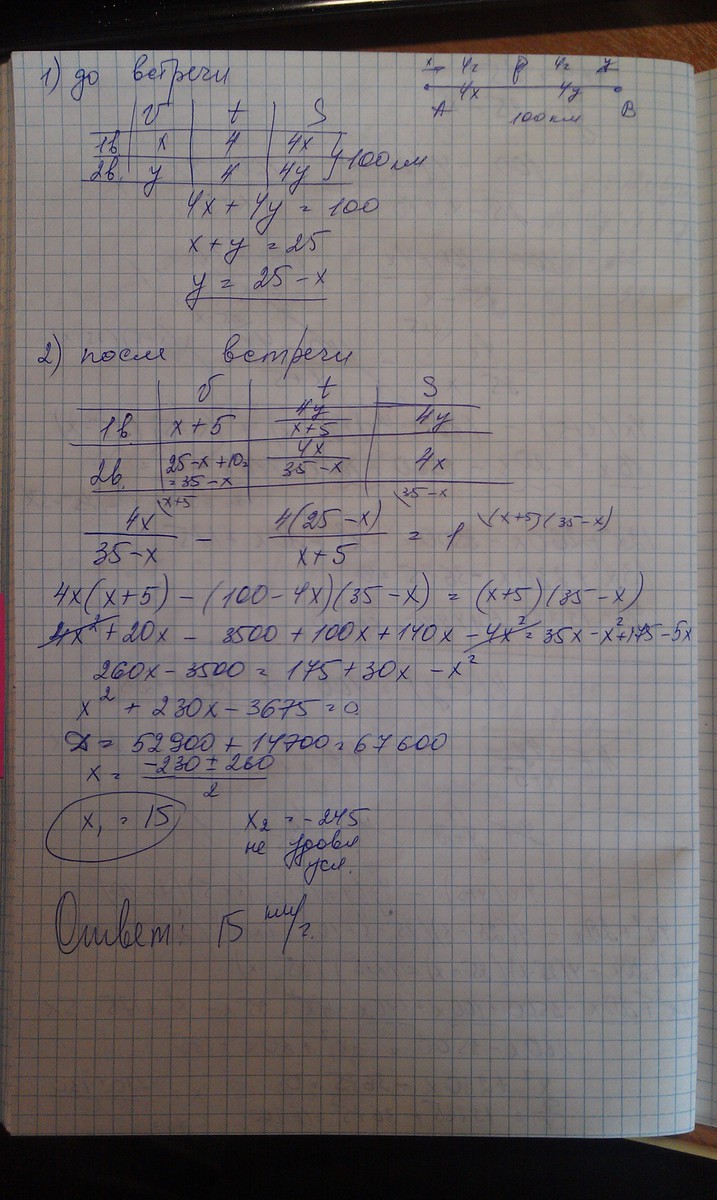 1) до встречи
x 4ч 4ч y
4x 4y
A 100км B
v t S
1в. x 4 4x
2в. y 4 4y } 100 км
4x + 4y = 100
x + y = 25
y = 25 - x
2) после встречи
v t S
1в. x + 5 4y/(x+5) 4y
2в. 25-x+10= =35-x 4x/(35-x) 4x
4x/(35-x) \x+5 - 4(25-x)/(x+5) \35-x = 1 \(x+5)(35-x)
4x(x+5) - (100-4x)(35-x) = (x+5)(35-x)
4x² + 20x - 3500 + 100x + 140x - 4x² = 35x - x² + 175 - 5x
260x - 3500 = 175 + 30x - x²
x² + 230x - 3675 = 0
D = 52900 + 14700 = 67600
x = (-230 ± 260)/2
x₁ = 15 x₂ = -245
не удовл
усл.
Ответ: 15 км/ч.